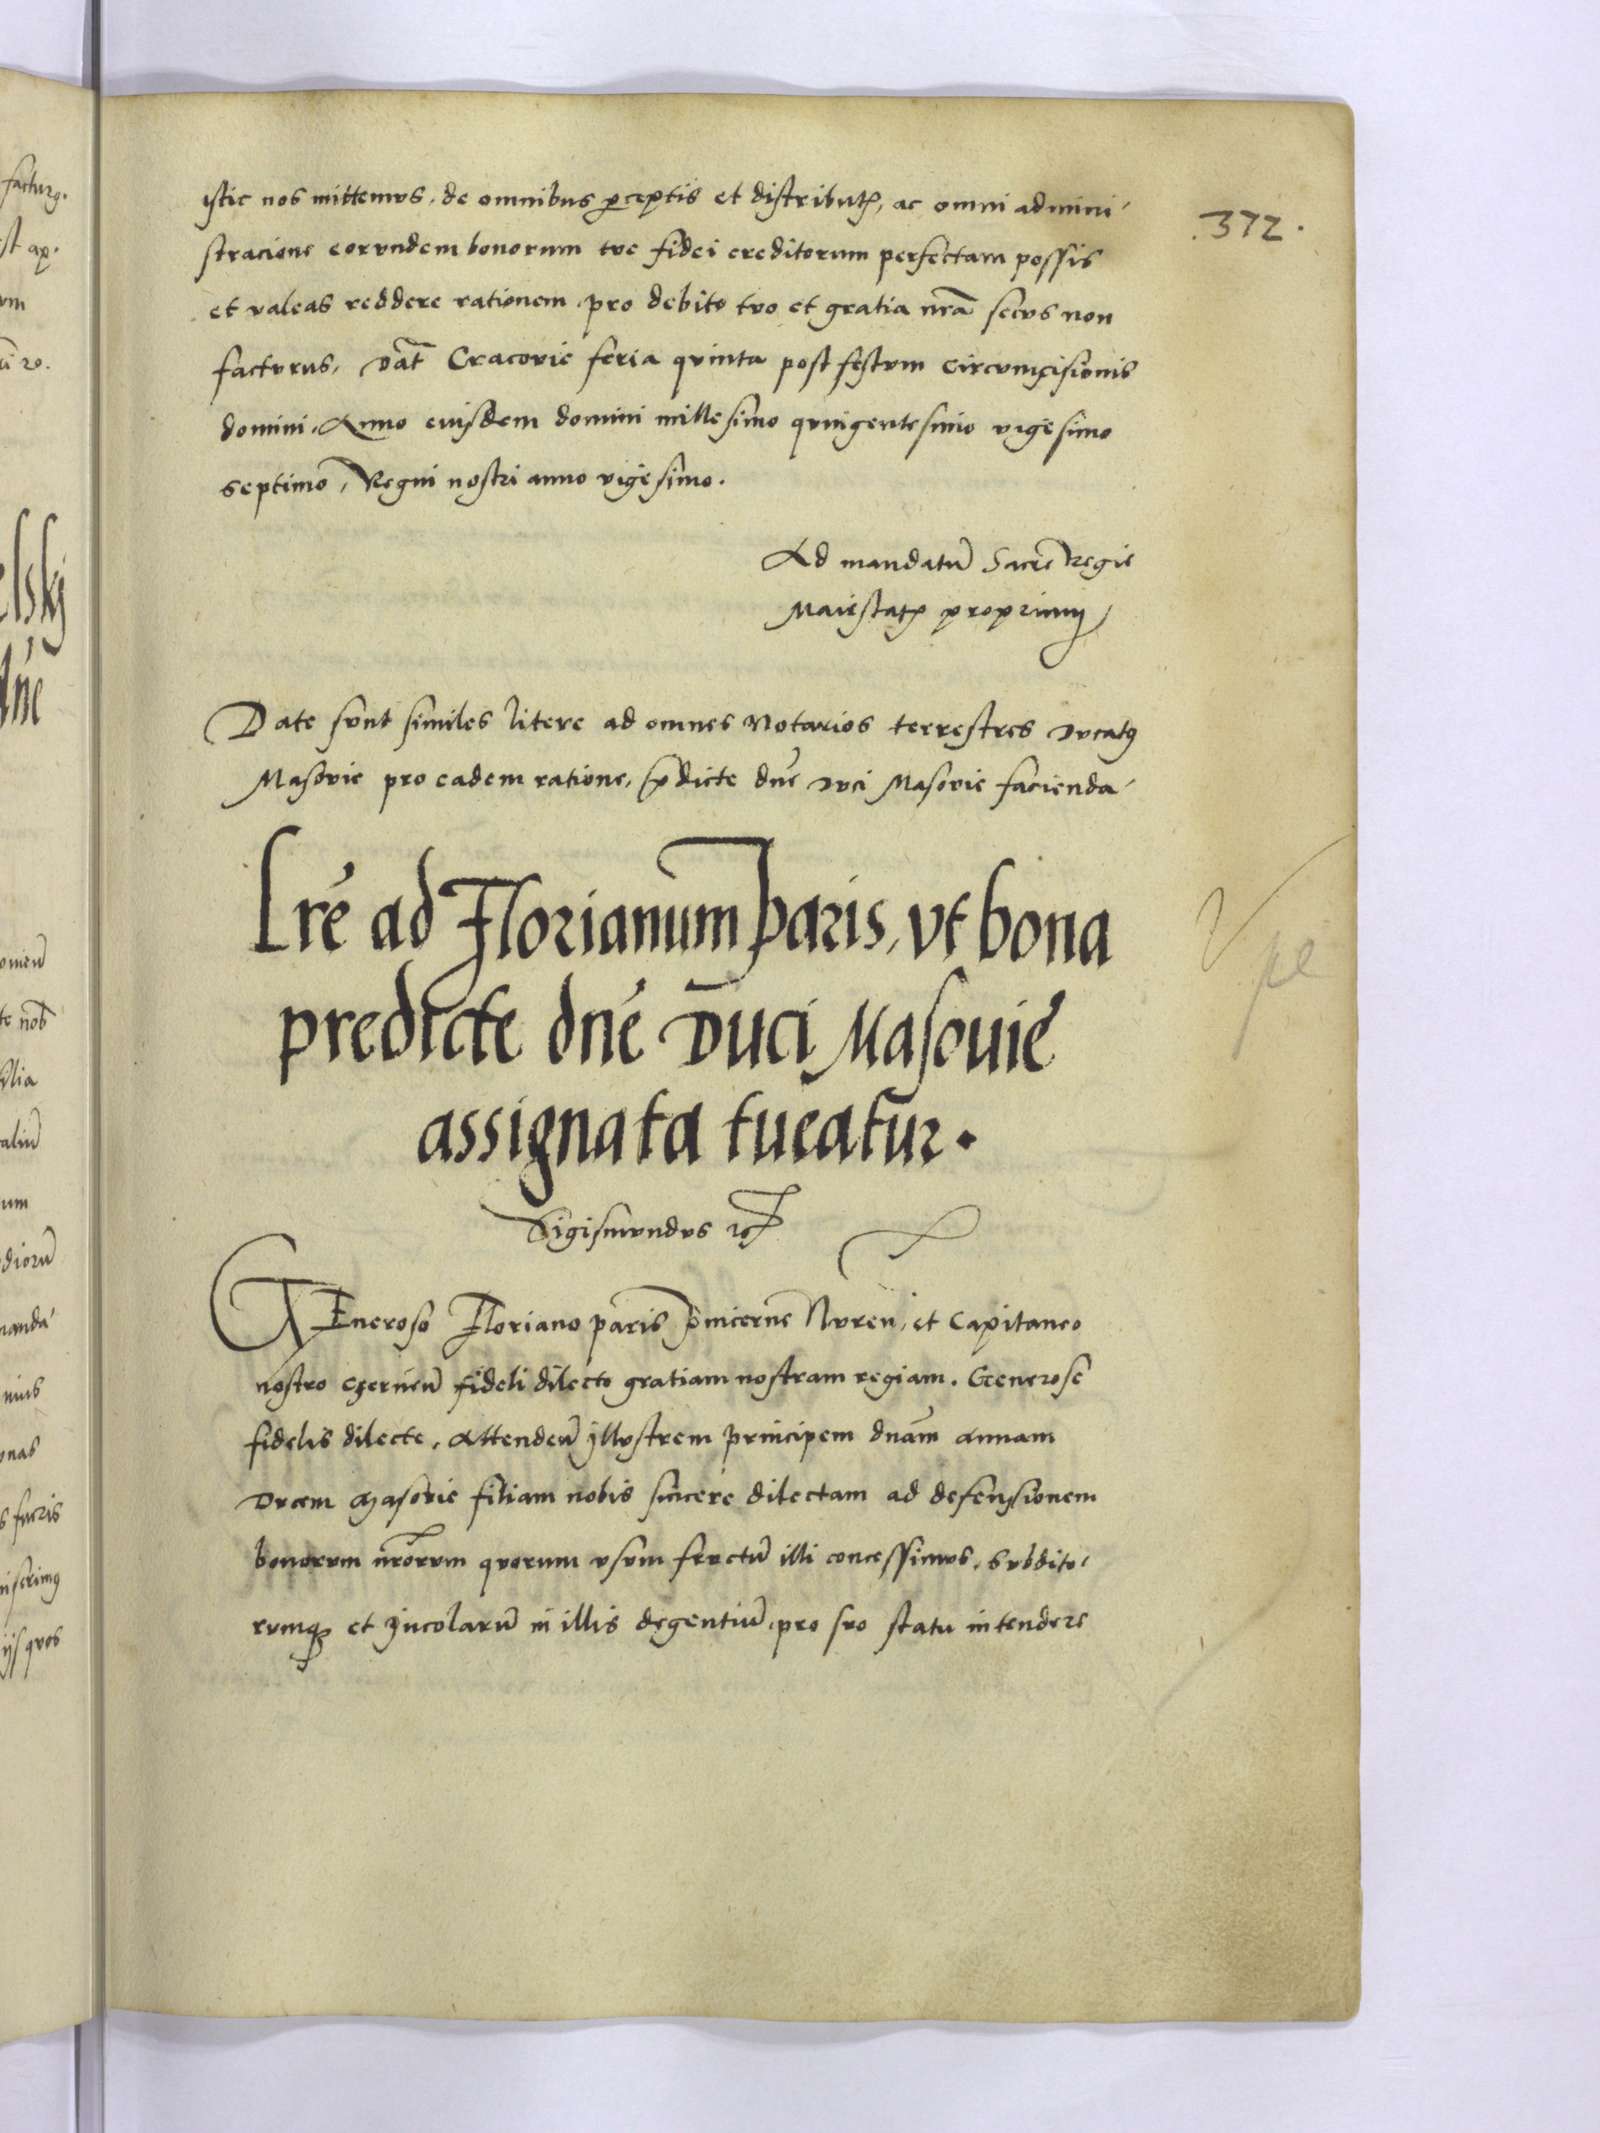 .372.
istic nos mittemus, de omnibus ꝑceptis et distributꝭ, ac omni admini-
stracione eorundem bonorum tue fidei creditorum perfectam possis
et valeas reddere rationem, pro debito tuo et gratia nr̃a secus non
facturus, Dat̃ Cracovie feria quinta post festum Circumcisionis
domini, Anno eiusdem domini millesimo quingentesimo vigesimo
septimo, Regni nostri anno vigesimo.
Ad mandatũ Sacre Regie
Maiestatꝭ proprium
Date sunt similes litere ad omnes Notarios terrestres Ducatꝰ
Masovie pro eadem ratione, p̃dicte dne Duci Masovie facienda
Lrẽ ad Florianum Paris, ut bona
predicte dnẽ Duci Masouie
assignata tueatur.
Sigismundus
Generoso Floriano paris pincerne Nuren, et Capitaneo
nostro Czerneñ fideli dilecto gratiam nostram regiam. Generose
fidelis dilecte, Attendeñ illustrem principem dnãm Annam
Ducem Masovie filiam nobis sincere dilectam ad defensionem
bonorum nr̃orum quorum usum fructũ illi concessimus, subdito-
rumqꝫ et Incolarũ in illis degentiũ, pro suo statu intendere